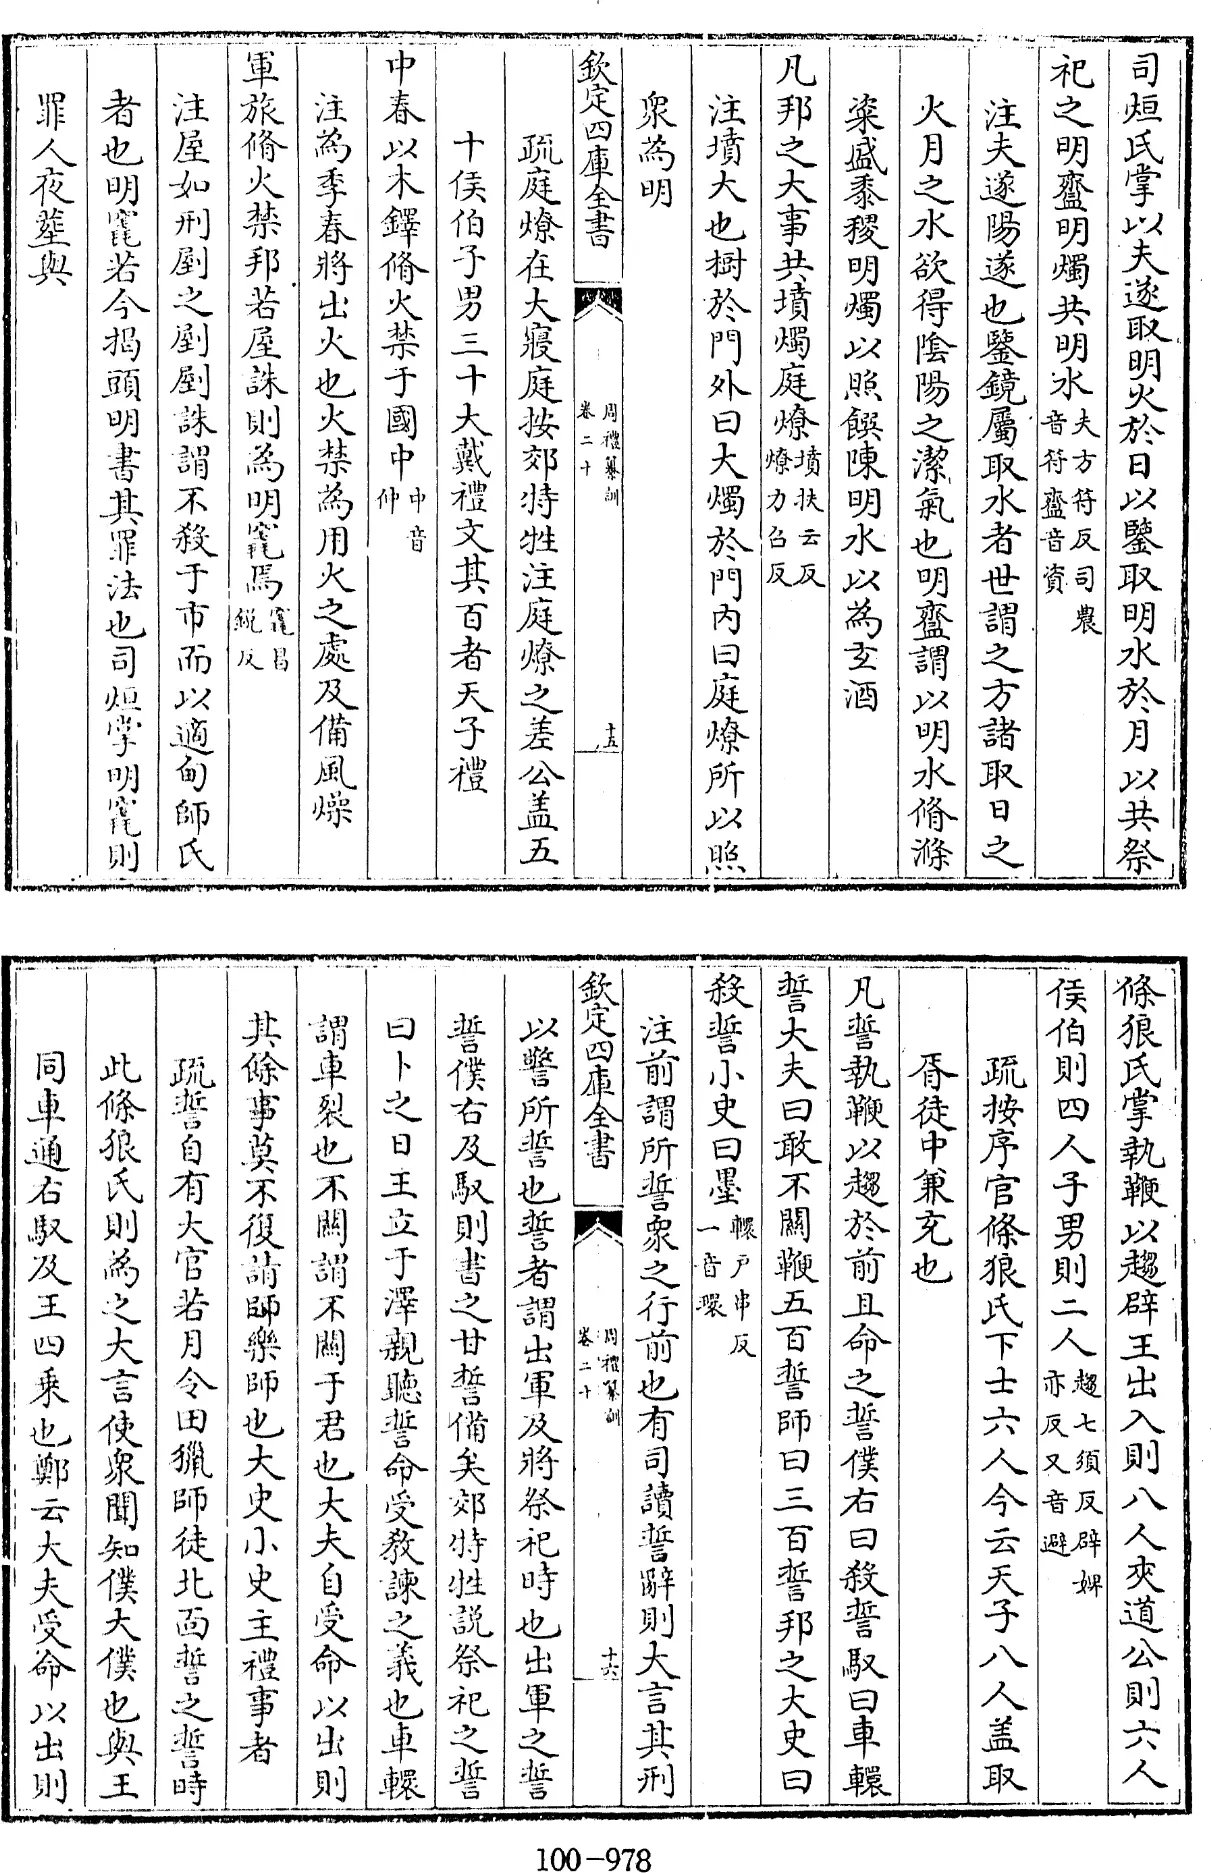 司烜氏掌以夫遂取明火於日以鑒取明水於月以共祭
祀之明齍明燭共明水夫方符反司農音符齍音資
注夫遂陽遂也鑒鏡屬取水者世謂之方諸取日之
火月之水欲得陰陽之潔氣也明齍謂以明水脩滌
粢盛黍稷明燭以照饌陳明水以為玄酒
凡邦之大事共墳燭庭燎墳扶云反燎力召反
注墳大也樹於門外曰大燭於門内曰庭燎所以照
衆為明
欽定四庫全書
周禮纂訓
卷二十
十五
疏庭燎在大寢庭按郊特牲注庭燎之差公盖五
十侯伯子男三十大戴禮文其百者天子禮
中春以木鐸脩火禁于國中中音仲
注為季春將出火也火禁為用火之處及備風燥
軍旅脩火禁邦若屋誅則為明竁焉竁昌銳反
注屋如刑剭之剭剭誅謂不殺于市而以適甸師氏
者也明竁若今揭頭明書其罪法也司烜掌明竁則
罪人夜塟與
條狼氏掌執鞭以趨辟王出入則八人夾道公則六人
侯伯則四人子男則二人趨七須反辟婢亦反又音避
疏按序官條狼氏下士六人今云天子八人盖取
胥徒中兼充也
凡誓執鞭以趨於前且命之誓僕右曰殺誓馭曰車轘
誓大夫曰敢不關鞭五百誓師曰三百誓邦之大史曰
殺誓小史曰墨轘戸串反一音環
注前謂所誓衆之行前也有司讀誓辭則大言其刑
欽定四庫全書
周禮纂訓
卷二十
十六
以警所誓也誓者謂出軍及將祭祀時也出軍之誓
誓僕右及馭則書之甘誓備矣郊特牲説祭祀之誓
曰卜之日王立于澤親聽誓命受教諫之義也車轘
謂車裂也不關謂不關于君也大夫自受命以出則
其餘事莫不復請師樂師也大史小史主禮事者
疏誓自有大官若月令田獵師徒北面誓之誓時
此條狼氏則為之大言使衆聞知僕大僕也與王
同車通右馭及王四乗也鄭云大夫受命以出則
100-978